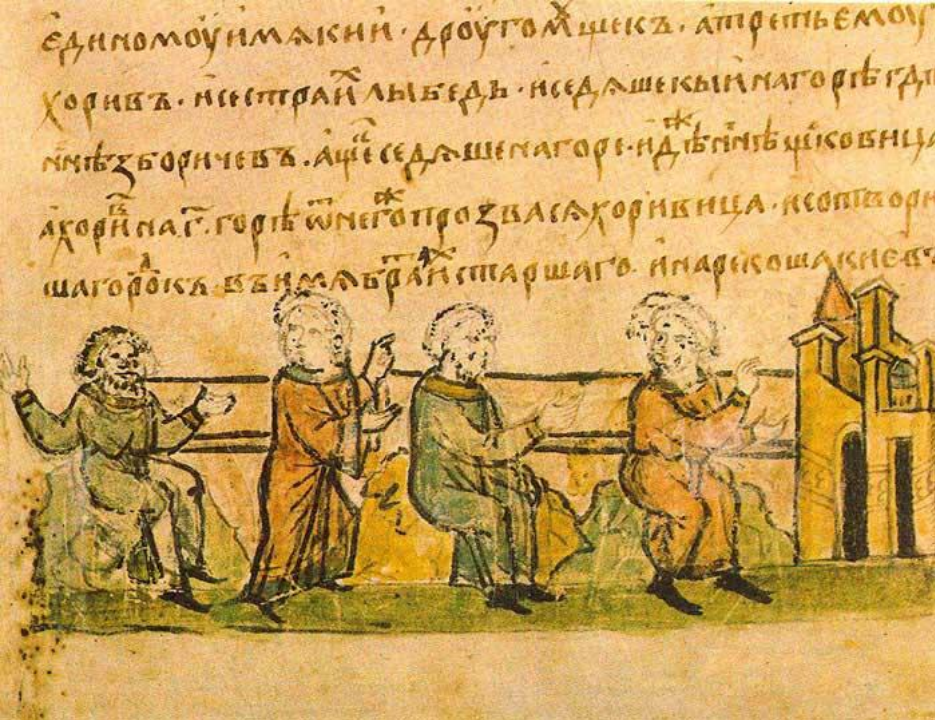 единомоу имѧ кии · дроугомⷹ щекъ · а третьемоу
хоривъ · и сестра иⷯ лыбедь · и седѧше кыи на горѣ гд
нн҃ѣ зборичевъ · а щеⷦ седѧше на горе · идѣⷤ нн҃ѣ щековица
а хориⷡ на г҃ · горѣ ѿ негоⷤ прозвасѧ хоривица · и сотвори
ша гороⷣкъ въ имѧ браⷮ иⷯ старшаго · и нарекоша киевъ